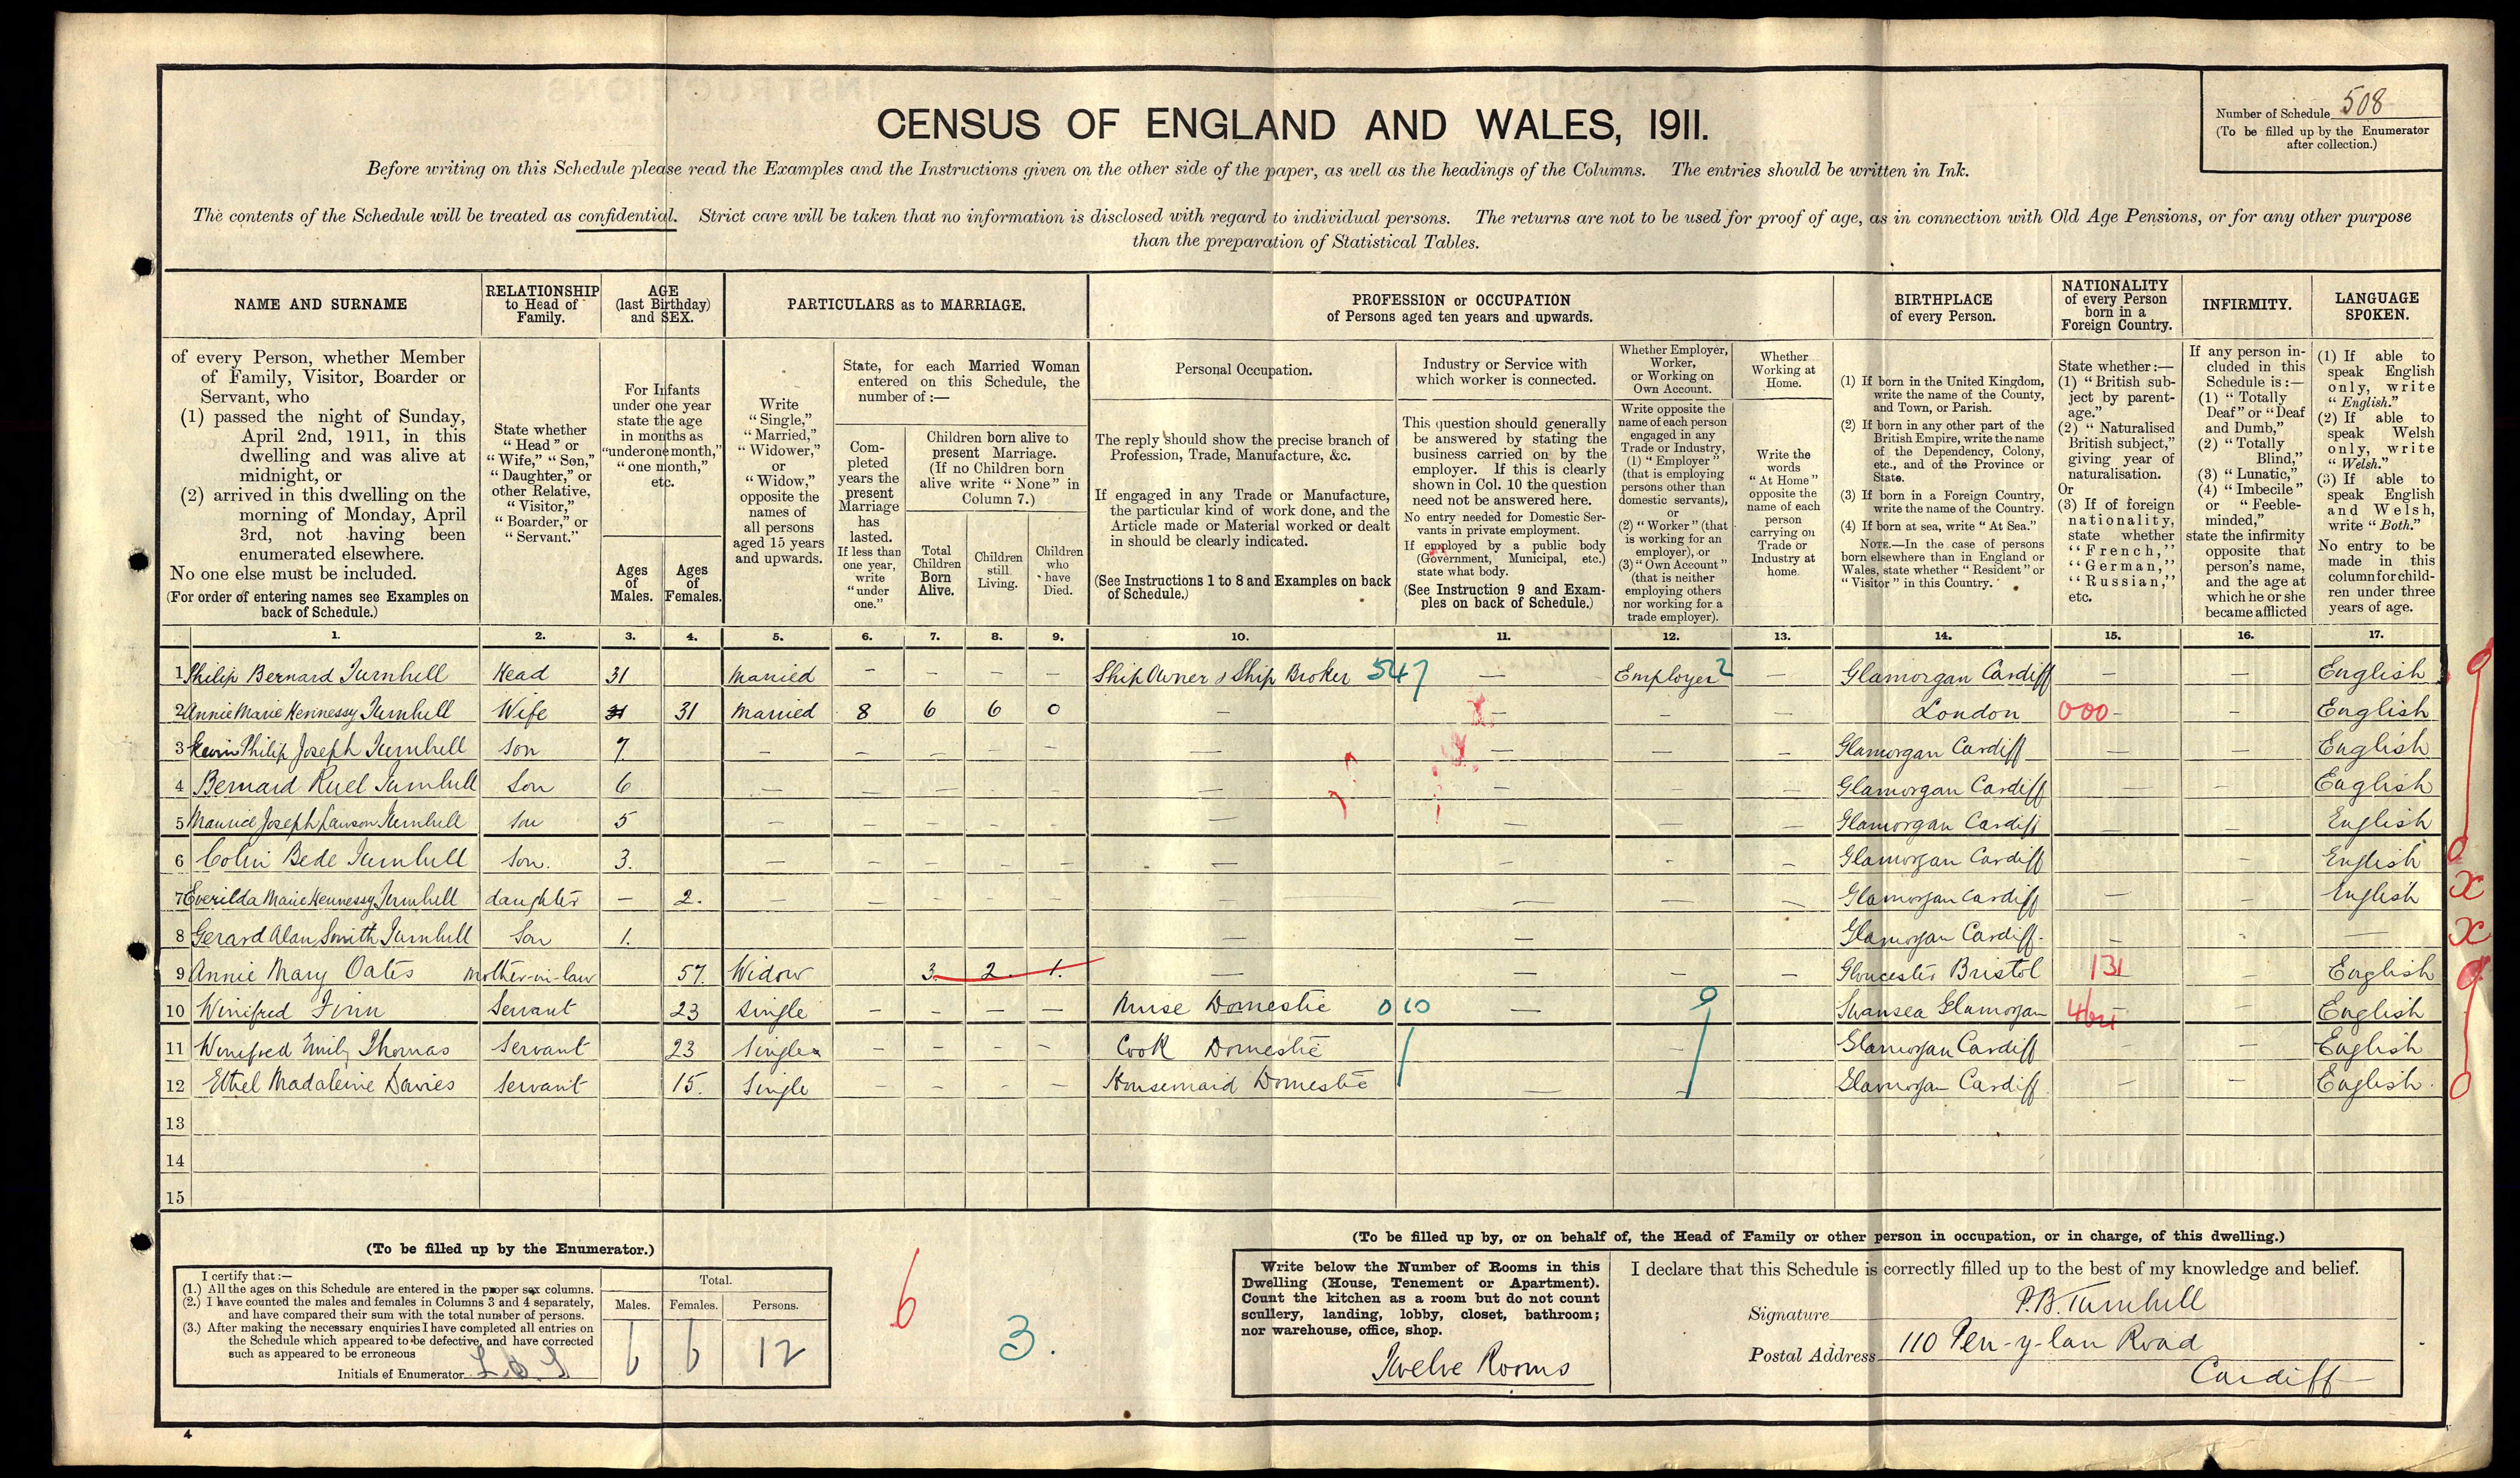 Number of Schedule 508
(To be filled up by the Enumerator
after collection.)
CENSUS OF ENGLAND AND WALES, 1911.
Before writing on this Schedule please read the Examples and the Instructions given on the other side of the paper, as well as the headings of the Columns. The entries should be written in Ink.
The contents of the Schedule will be treated as confidential. Strict care will be taken that no information is disclosed with regard to individual persons. The returns are not to be used for proof of age, as in connection with Old Age Pensions, or for any other purpose
than the preparation of Statistical Tables.
NAME AND SURNAME
of every Person, whether Member
of Family, Visitor, Boarder or
Servant, who
(1) passed the night of Sunday,
April 2nd, 1911, in this
dwelling and was alive at
midnight, or
(2) arrived in this dwelling on the
morning of Monday, April
3rd, not having been
enumerated elsewhere.
No one else must be included.
(For order of entering names see Examples on
back of Schedule.)
1.
RELATIONSHIP
to Head of
Family.
State whether
"Head" or
"Wife," "Son,"
"Daughter," or
other Relative,
"Visitor,"
"Boarder," or
"Servant."
2.
AGE
(last Birthday)
and SEX.
For Infants
under one year
state the age
in months as
"under one month,"
"one month,"
etc.
Ages
of
Males.
3.
Ages
of
Females.
4.
PARTICULARS as to MARRIAGE.
Write
"Single,"
"Married,"
"Widower,"
or
"Widow,"
opposite the
names of
all persons
aged 15 years
and upwards.
5.
State, for each Married Woman
entered on this Schedule, the
number of :—
Com-
pleted
years the
present
Marriage
has
lasted.
If less than
one year,
write
"under
one."
6.
Children born alive to
present Marriage.
(If no Children born
alive write "None" in
Column 7.)
Total
Children
Born
Alive.
7.
Children
still
Living.
8.
Children
who
have
Died.
9.
PROFESSION or OCCUPATION
of Persons aged ten years and upwards.
Personal Occupation.
The reply should show the precise branch of
Profession, Trade, Manufacture, &c.
If engaged in any Trade or Manufacture,
the particular kind of work done, and the
Article made or Material worked or dealt
in should be clearly indicated.
(See Instructions 1 to 8 and Examples on back
of Schedule.)
10.
Industry or Service with
which worker is connected.
This question should generally
be answered by stating the
business carried on by the
employer. If this is clearly
shown in Col. 10 the question
need not be answered here.
No entry needed for Domestic Ser-
vants in private employment.
If employed by a public body
(Government, Municipal, etc.)
state what body.
(See Instruction 9 and Exam-
ples on back of Schedule.)
11.
Whether Employer,
Worker,
or Working on
Own Account.
Write opposite the
name of each person
engaged in any
Trade or Industry,
(1) "Employer"
(that is employing
persons other than
domestic servants),
or
(2) "Worker" (that
is working for an
employer), or
(3) "Own Account"
(that is neither
employing others
nor working for a
trade employer).
12.
Whether
Working at
Home.
Write the
words
"At Home"
opposite the
name of each
person
carrying on
Trade or
Industry at
home.
13.
BIRTHPLACE
of every Person.
(1) If born in the United Kingdom,
write the name of the County,
and Town, or Parish.
(2) If born in any other part of the
British Empire, write the name
of the Dependency, Colony,
etc., and of the Province or
State.
(3) If born in a Foreign Country,
write the name of the Country.
(4) If born at sea, write "At Sea."
NOTE.—In the case of persons
born elsewhere than in England or
Wales, state whether "Resident" or
"Visitor" in this Country.
14.
NATIONALITY
of every Person
born in a
Foreign Country.
State whether :—
(1) "British sub-
ject by parent-
age."
(2) "Naturalised
British subject,"
giving year of
naturalisation.
Or
(3) If of foreign
nationality,
state whether
"French,"
"German,"
"Russian,"
etc.
15.
INFIRMITY.
If any person in-
cluded in this
Schedule is :—
(1) "Totally
Deaf" or "Deaf
and Dumb,"
(2) "Totally
Blind,"
(3) "Lunatic,"
(4) "Imbecile"
or "Feeble-
minded,"
state the infirmity
opposite that
person's name,
and the age at
which he or she
became afflicted
16.
LANGUAGE
SPOKEN.
(1) If able to
speak English
only, write
"English."
(2) If able to
speak Welsh
only, write
"Welsh."
(3) If able to
speak English
and Welsh,
write "Both."
No entry to be
made in this
column for child-
ren under three
years of age.
17.
1 Philip Bernard Turnbull Head 31 Married — — — — Ship Owner & Ship Broker 547 — Employer 2 — Glamorgan Cardiff — — English
2 Annie Marie Hennessy Turnbull Wife 31 31 Married 8 6 6 0 — — — — London 000 — English
3 Kevin Philip Joseph Turnbull Son 7. — — — — — — — — — Glamorgan Cardiff — — English
4 Bernard Ruel Turnbull Son 6 — — — — — — — — — Glamorgan Cardiff — — English
5 Maurice Joseph Lawson Turnbull Son 5 — — — — — — — — Glamorgan Cardiff — — English
6 Colin Bede Turnbull Son. 3. — — — — — — — — — Glamorgan Cardiff — English
7 Everilda Marie Hennessy Turnbull daughter — 2. — — — — — — — — — Glamorgan Cardiff — — English x
8 Gerard Alan Smith Turnbull Son 1. — — Glamorgan Cardiff. — — — x
9 Annie Mary Oates Mother-in-law 57. Widow 3 2 1. — — — — Gloucester Bristol 131 — English
10 Winifred Finn Servant 23 Single — — — — Nurse Domestic 010 — Swansea Glamorgan — English
11 Winefred Emily Thomas Servant 23 Single — — — — Cook Domestic — Glamorgan Cardiff — English
12 Ethel Madaleine Davies Servant 15. Single — — — — Housemaid Domestic — — Glamorgan Cardiff — — English.
13
14
15
(To be filled up by the Enumerator.)
I certify that :—
(1.) All the ages on this Schedule are entered in the proper sex columns.
(2.) I have counted the males and females in Columns 3 and 4 separately,
and have compared their sum with the total number of persons.
(3.) After making the necessary enquiries I have completed all entries on
the Schedule which appeared to be defective, and have corrected
such as appeared to be erroneous
Initials of Enumerator
Total.
Males. Females. Persons.
6 6 12
6
3.
(To be filled up by, or on behalf of, the Head of Family or other person in occupation, or in charge, of this dwelling.)
Write below the Number of Rooms in this
Dwelling (House, Tenement or Apartment).
Count the kitchen as a room but do not count
scullery, landing, lobby, closet, bathroom;
nor warehouse, office, shop.
Twelve Rooms
I declare that this Schedule is correctly filled up to the best of my knowledge and belief.
Signature P.B. Turnbull
Postal Address 110 Pen-y-lan Road
Cardiff
4